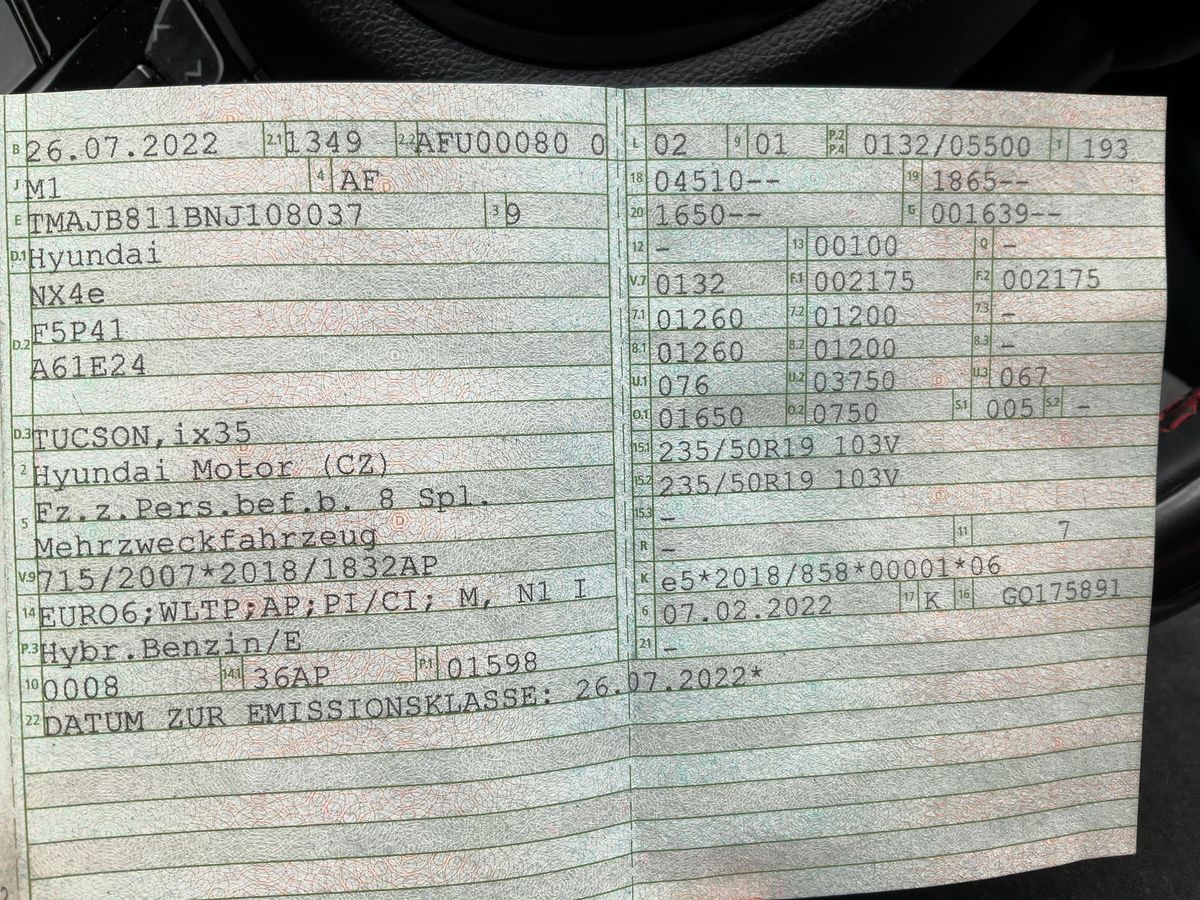 B 26.07.2022 2.1 1349 2.2 AFU00080 0
J M1 4 AF
E TMAJB811BNJ108037 3 9
D.1 Hyundai
NX4e
D.2 F5P41
A61E24
D.3 TUCSON,ix35
2 Hyundai Motor (CZ)
5 Fz.z.Pers.bef.b. 8 Spl.
Mehrzweckfahrzeug
V.9 715/2007*2018/1832AP
14 EURO6;WLTP;AP;PI/CI; M, N1 I
P.3 Hybr.Benzin/E
10 0008 14.1 36AP P.1 01598
22 DATUM ZUR EMISSIONSKLASSE: 26.07.2022*
L 02 9 01 P.2 P.4 0132/05500 T 193
18 04510-- 19 1865--
20 1650-- G 001639--
12 - 13 00100 Q -
V.7 0132 F.1 002175 F.2 002175
7.1 01260 7.2 01200 7.3 -
8.1 01260 8.2 01200 8.3 -
U.1 076 U.2 03750 U.3 067
O.1 01650 O.2 0750 S.1 005 S.2 -
15.1 235/50R19 103V
15.2 235/50R19 103V
15.3 -
R - 11 7
K e5*2018/858*00001*06
6 07.02.2022 17 K 16 GQ175891
21 -